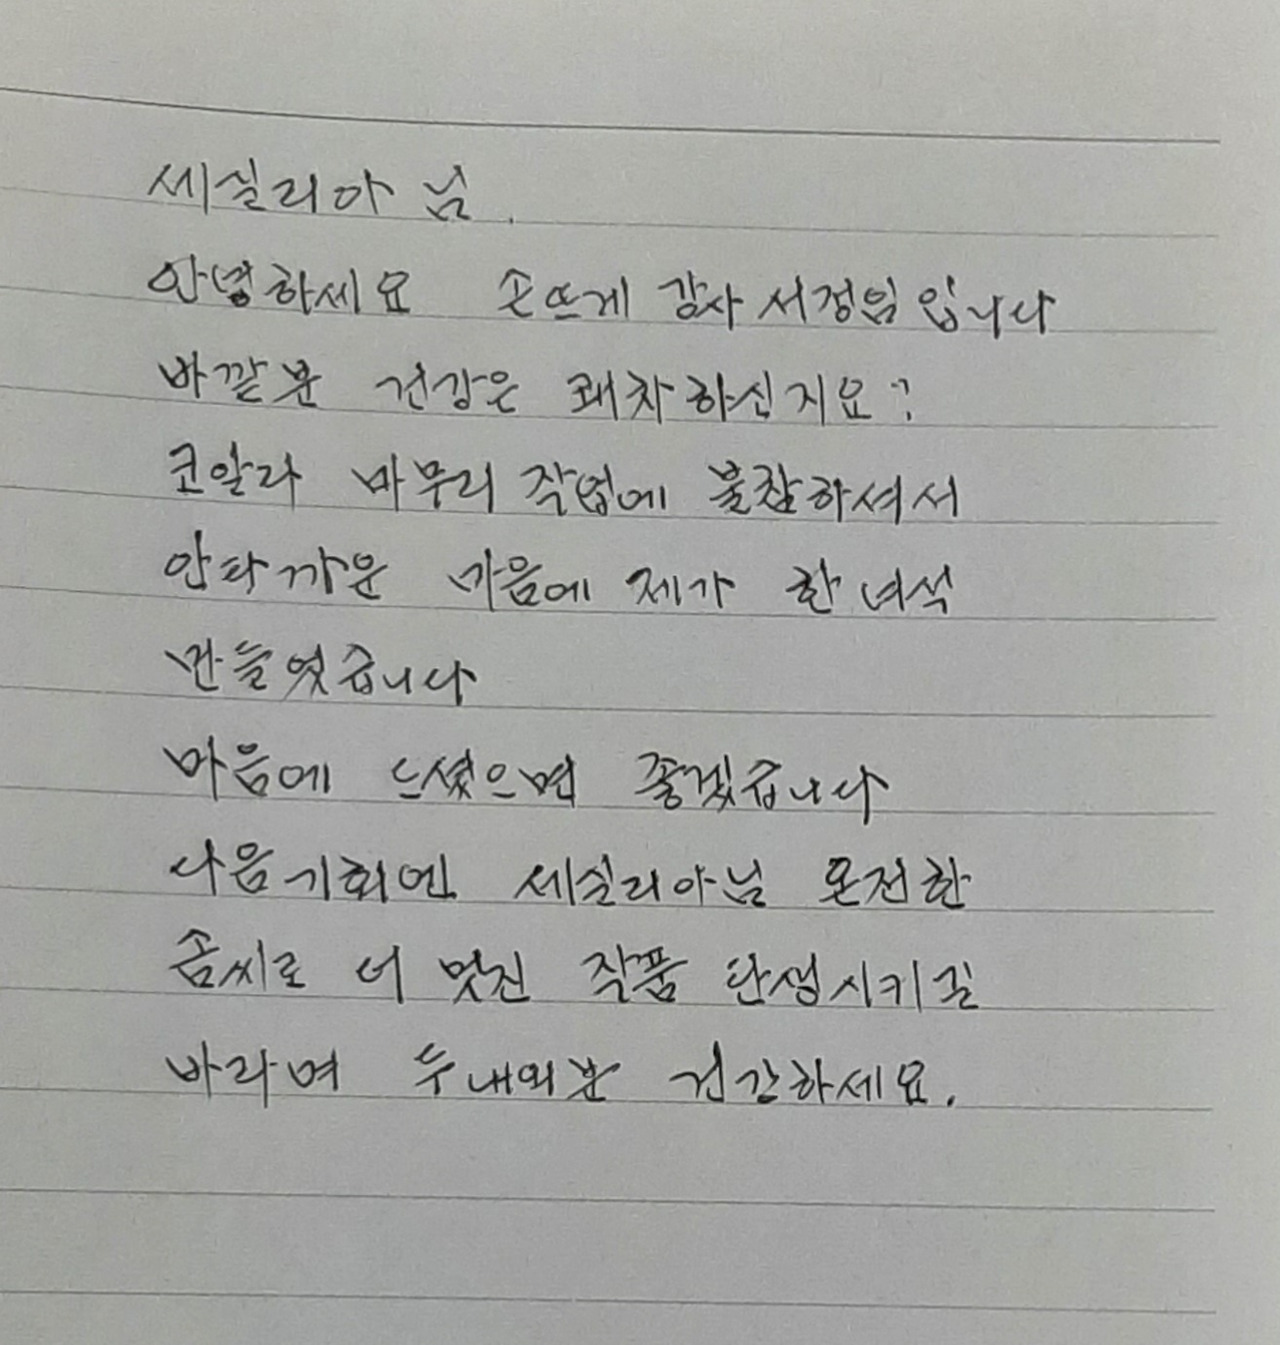 세실리아 님.
안녕하세요 손뜨게 강사 서정임입니다
바깥분 건강은 쾌차하신지요?
코알라 마무리 작업에 불참하셔서
안타까운 마음에 제가 한 녀석
만들었습니다
마음에 드셨으면 좋겠습니다
다음기회엔 세실리아님 온전한
솜씨로 더 멋진 작품 탄생시키길
바라며 두내외분 건강하세요.